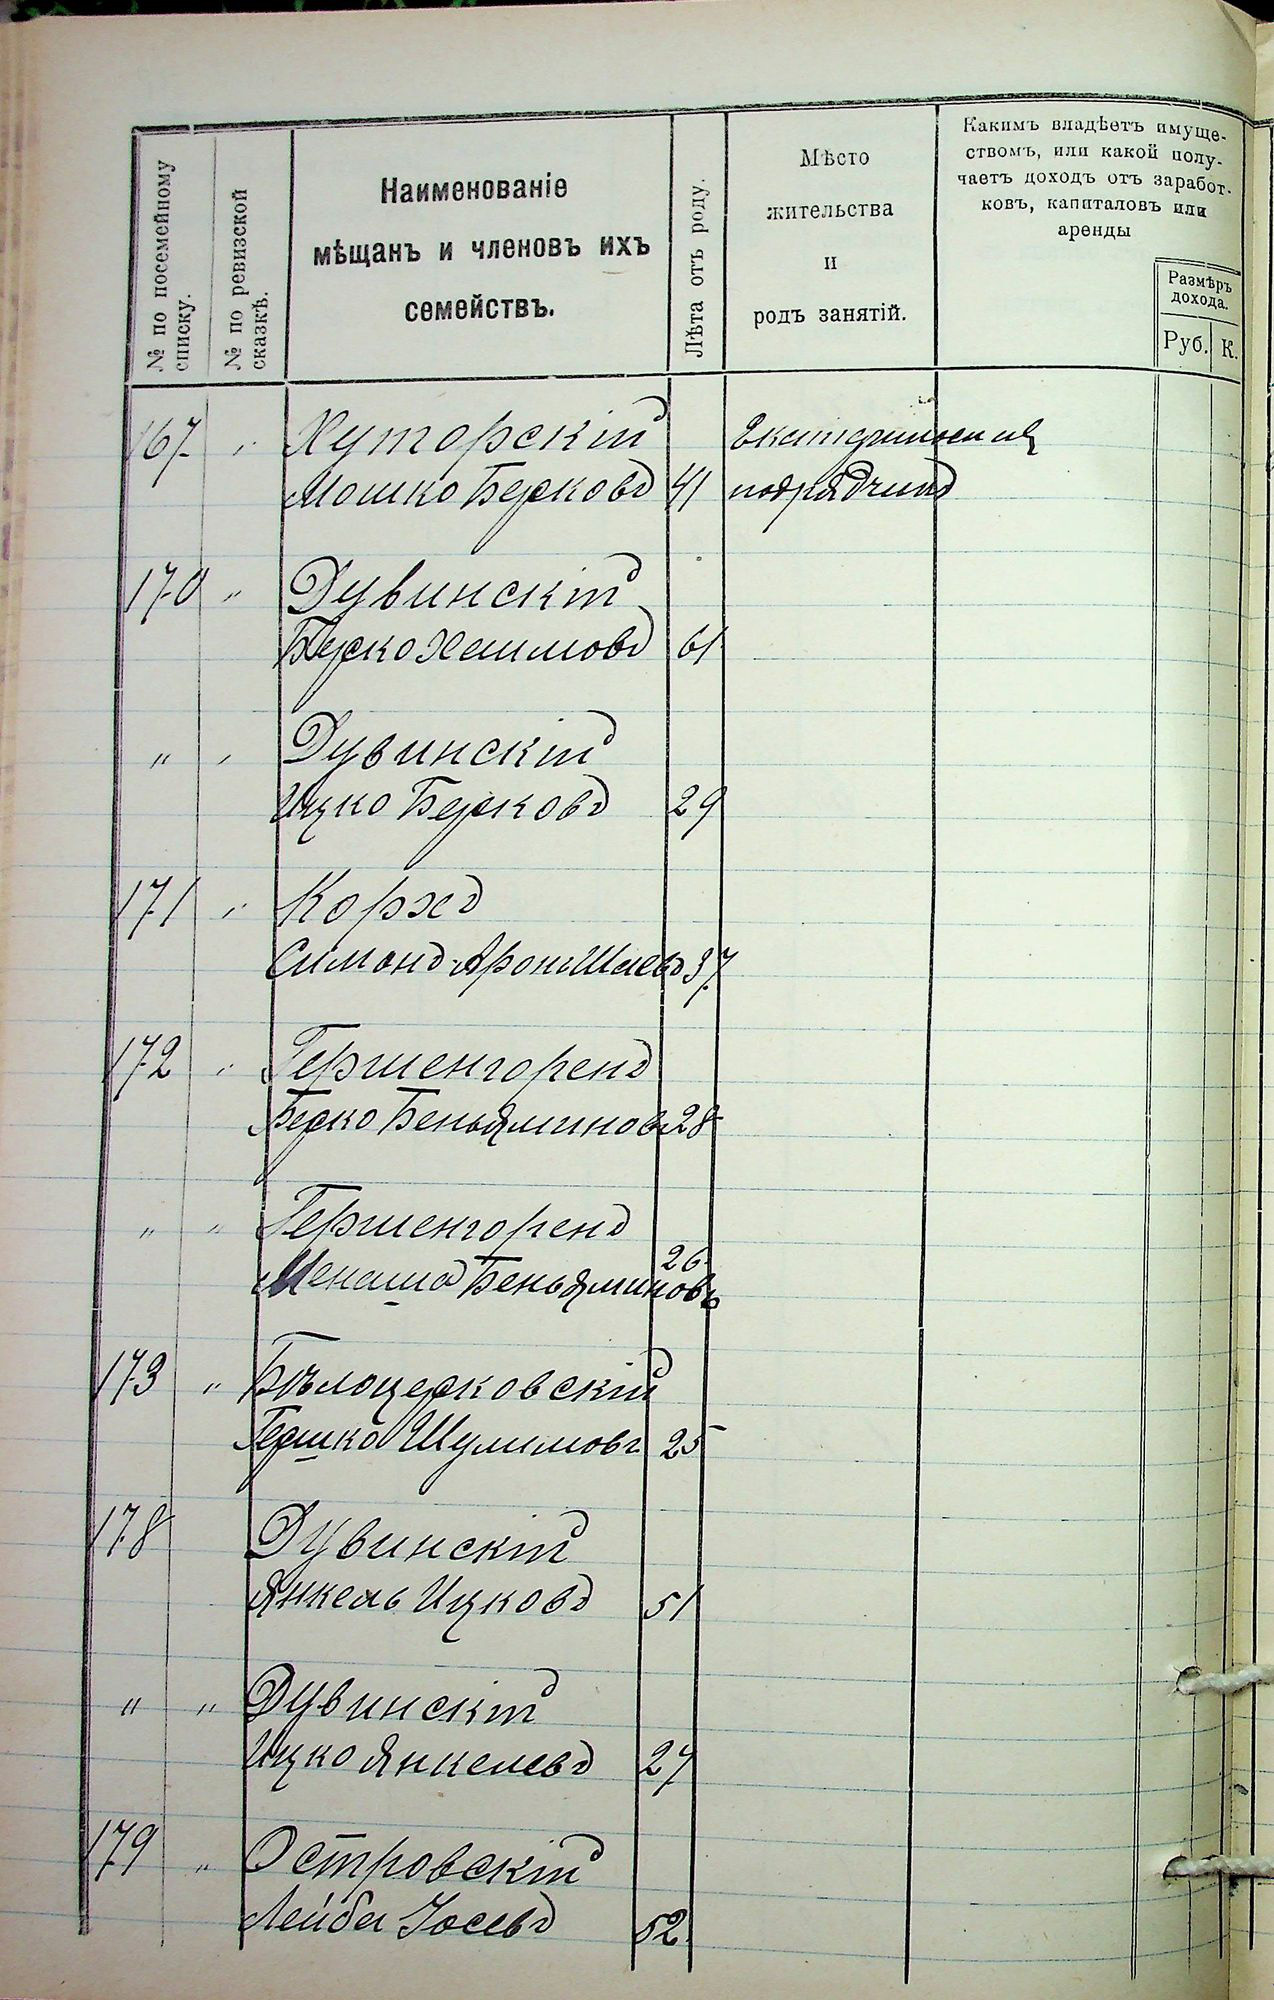 № по посемейному списку.
№ по ревизской сказкѣ.
Наименованіе
мѣщанъ и членовъ ихъ
семействъ.
Лѣта отъ роду.
Мѣсто
жительства
и
родъ занятій.
Какимъ владѣетъ имуще-
ствомъ, или какой полу-
чаетъ доходъ отъ заработ-
ковъ, капиталовъ или
аренды
Размѣръ
дохода.
Руб. К.
167 " Хуторскій
Мошко Берковъ 41 подрядчикъ
170 " Дувинскій
Берко Хаимовъ 61
" " Дувинскій
Ицко Берковъ 29
171 " Коржъ
Симонъ-Аронъ Шаевъ 37
172 " Гершенгоренъ
Берко Беньяминовъ 28
" " Гершенгоренъ
26
Менаша Беньяминовъ
173 " Бѣлоцерковскій
Гершко Шулимовъ 25
178 Дувинскій
Янкель Ицковъ 51
" " Дувинскій
Ицко Янкелевъ 27
179 " Островскій
Лейба Іосевъ 52